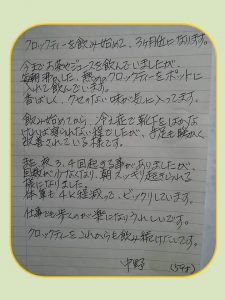 フロックティーを飲み始めて、3ヶ月位になります。
今までお茶やジュースを飲んでいましたが、
朝沸かした、熱めのフロックティーをポットに
入れて飲んでいます。
香ばしく、クセのない味が気に入ってます。
飲み始めてから、冷え症で靴下をはかな
ければ寝られない程でしたが、手足も暖かく
改善されている様です。
夜3、4回起きる事がありましたが、
回数が少なくなり、朝スッキリ起きられる
様になりました。
体重も4K軽減って、ビックリしています。
仕事でも歩くのが楽になりうれしいです。
フロックティーをこれからも飲み続けたいです。
中野 (59才)